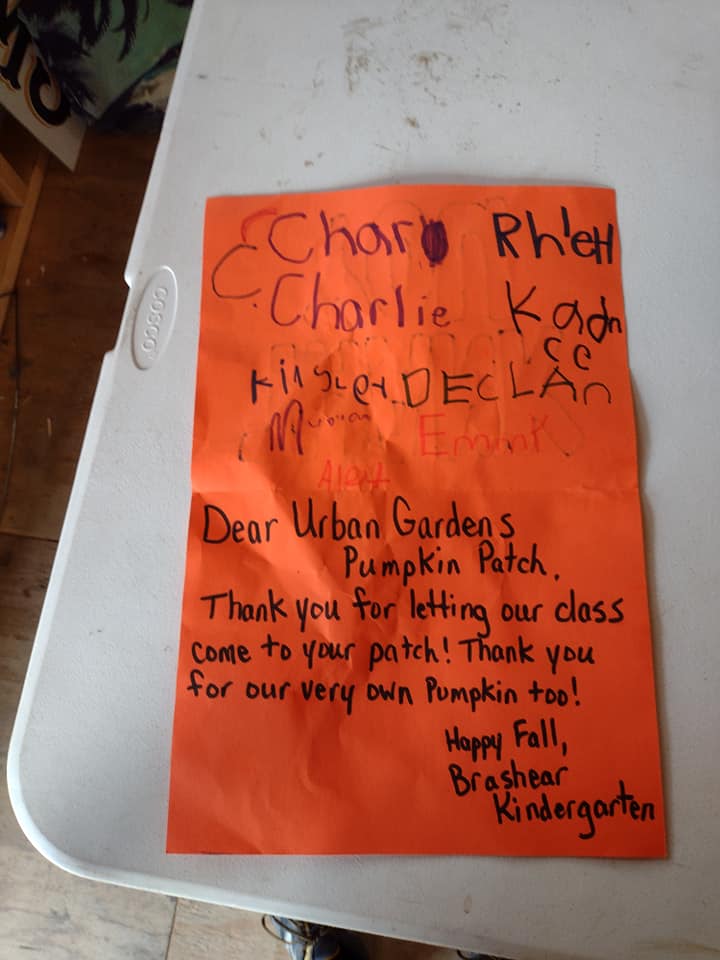 Char Rhett
Charlie Kadn
ce
DECLAn
Emmk
Dear Urban Gardens
Pumpkin Patch,
Thank you for letting our class
come to your patch! Thank you
for our very own Pumpkin too!
Happy Fall,
Brashear
Kindergarten
COSCO